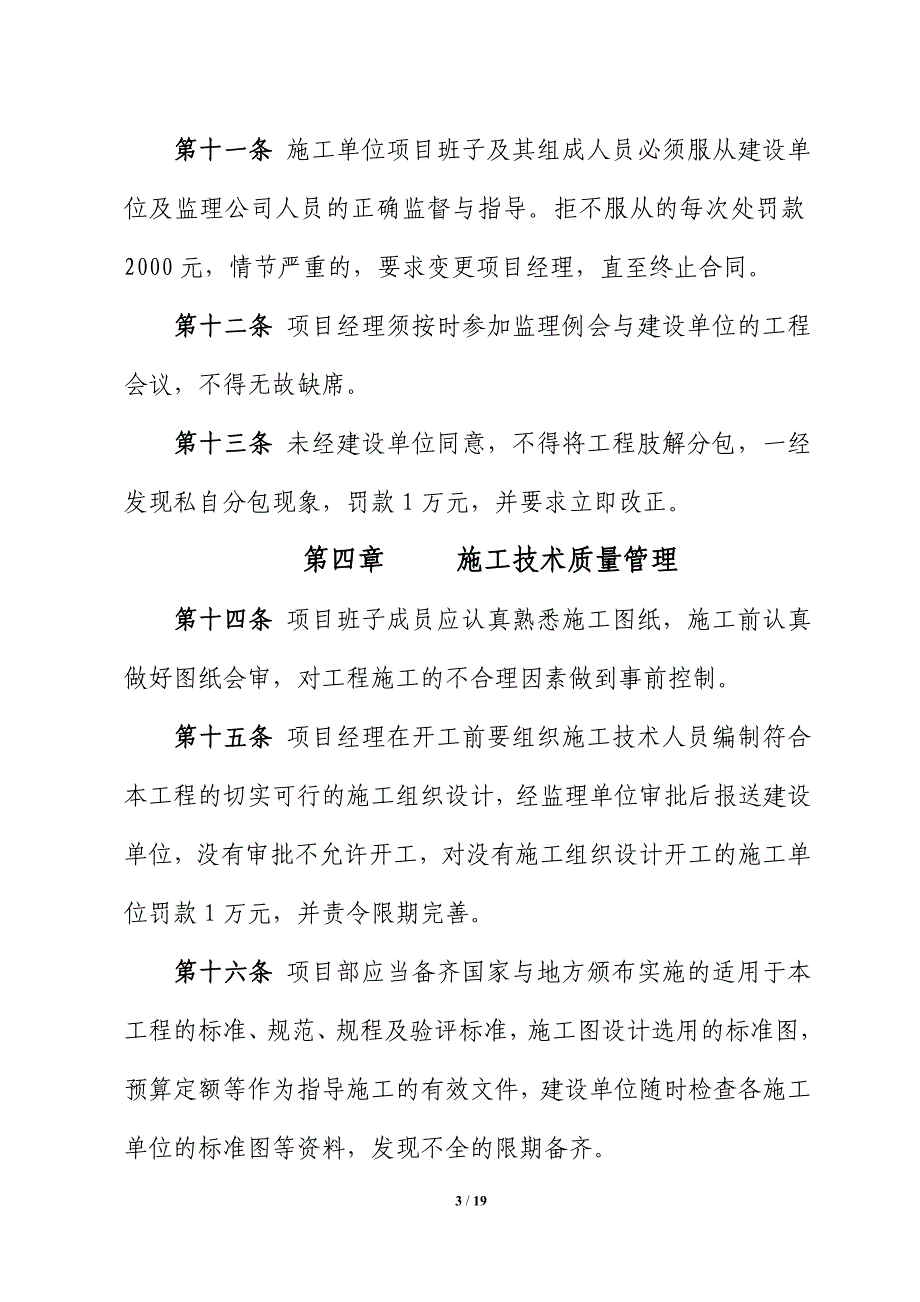 第十一条 施工单位项目班子及其组成人员必须服从建设单
位及监理公司人员的正确监督与指导。拒不服从的每次处罚款
2000 元，情节严重的，要求变更项目经理，直至终止合同。
第十二条 项目经理须按时参加监理例会与建设单位的工程
会议，不得无故缺席。
第十三条 未经建设单位同意，不得将工程肢解分包，一经
发现私自分包现象，罚款 1 万元，并要求立即改正。
第四章 施工技术质量管理
第十四条 项目班子成员应认真熟悉施工图纸，施工前认真
做好图纸会审，对工程施工的不合理因素做到事前控制。
第十五条 项目经理在开工前要组织施工技术人员编制符合
本工程的切实可行的施工组织设计，经监理单位审批后报送建设
单位，没有审批不允许开工，对没有施工组织设计开工的施工单
位罚款 1 万元，并责令限期完善。
第十六条 项目部应当备齐国家与地方颁布实施的适用于本
工程的标准、规范、规程及验评标准，施工图设计选用的标准图，
预算定额等作为指导施工的有效文件，建设单位随时检查各施工
单位的标准图等资料，发现不全的限期备齐。
3 / 19